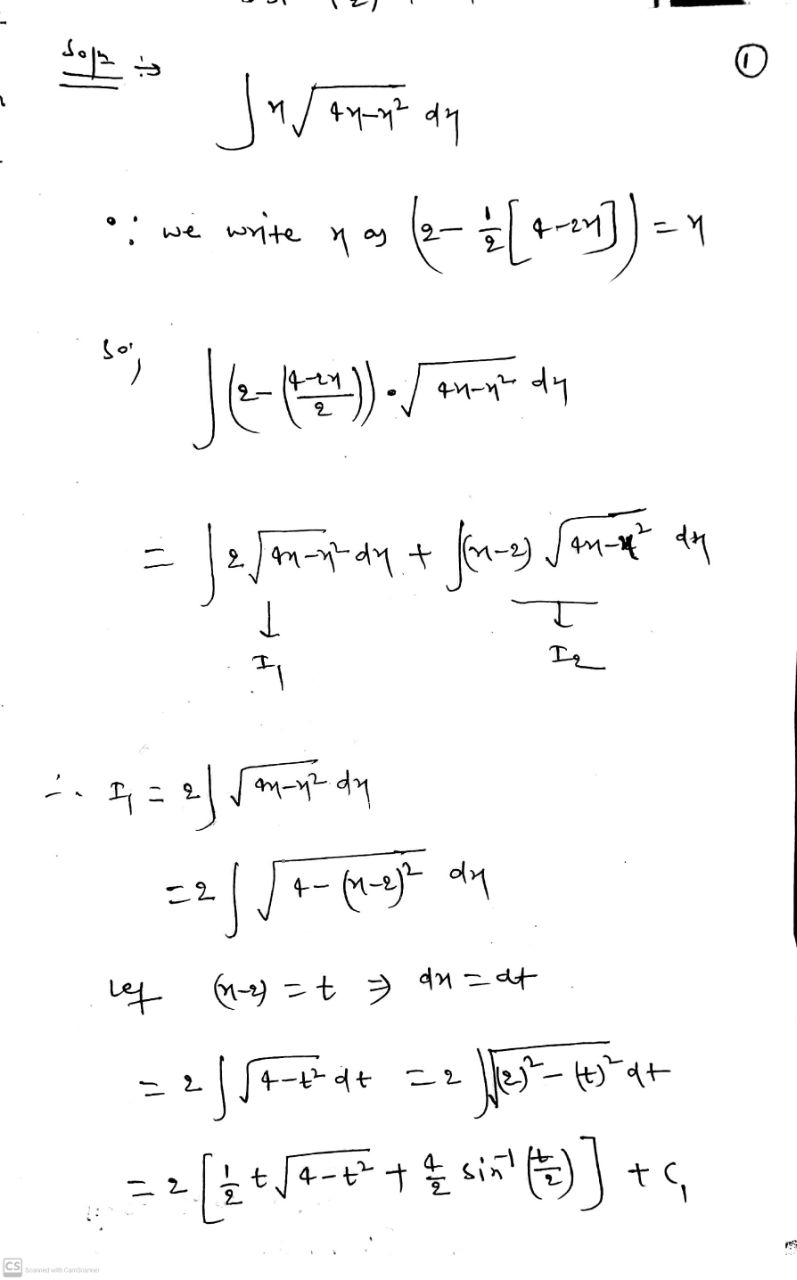 Solⁿ ⇒ ①
∫ x √(4x-x²) dx
∵ we write x as (2 - 1/2 [4-2x]) = x
so, ∫ (2 - ((4-2x)/2)) · √(4x-x²) dx
= ∫ 2 √(4x-x²) dx + ∫ (x-2) √(4x-x²) dx
↓ ↓
I₁ I₂
∴ I₁ = 2 ∫ √(4x-x²) dx
= 2 ∫ √(4-(x-2)²) dx
Let (x-2) = t ⇒ dx = dt
= 2 ∫ √(4-t²) dt = 2 ∫ √((2)²-(t)²) dt
= 2 [1/2 t √(4-t²) + 4/2 sin⁻¹ (t/2)] + C₁
CS Scanned with CamScanner